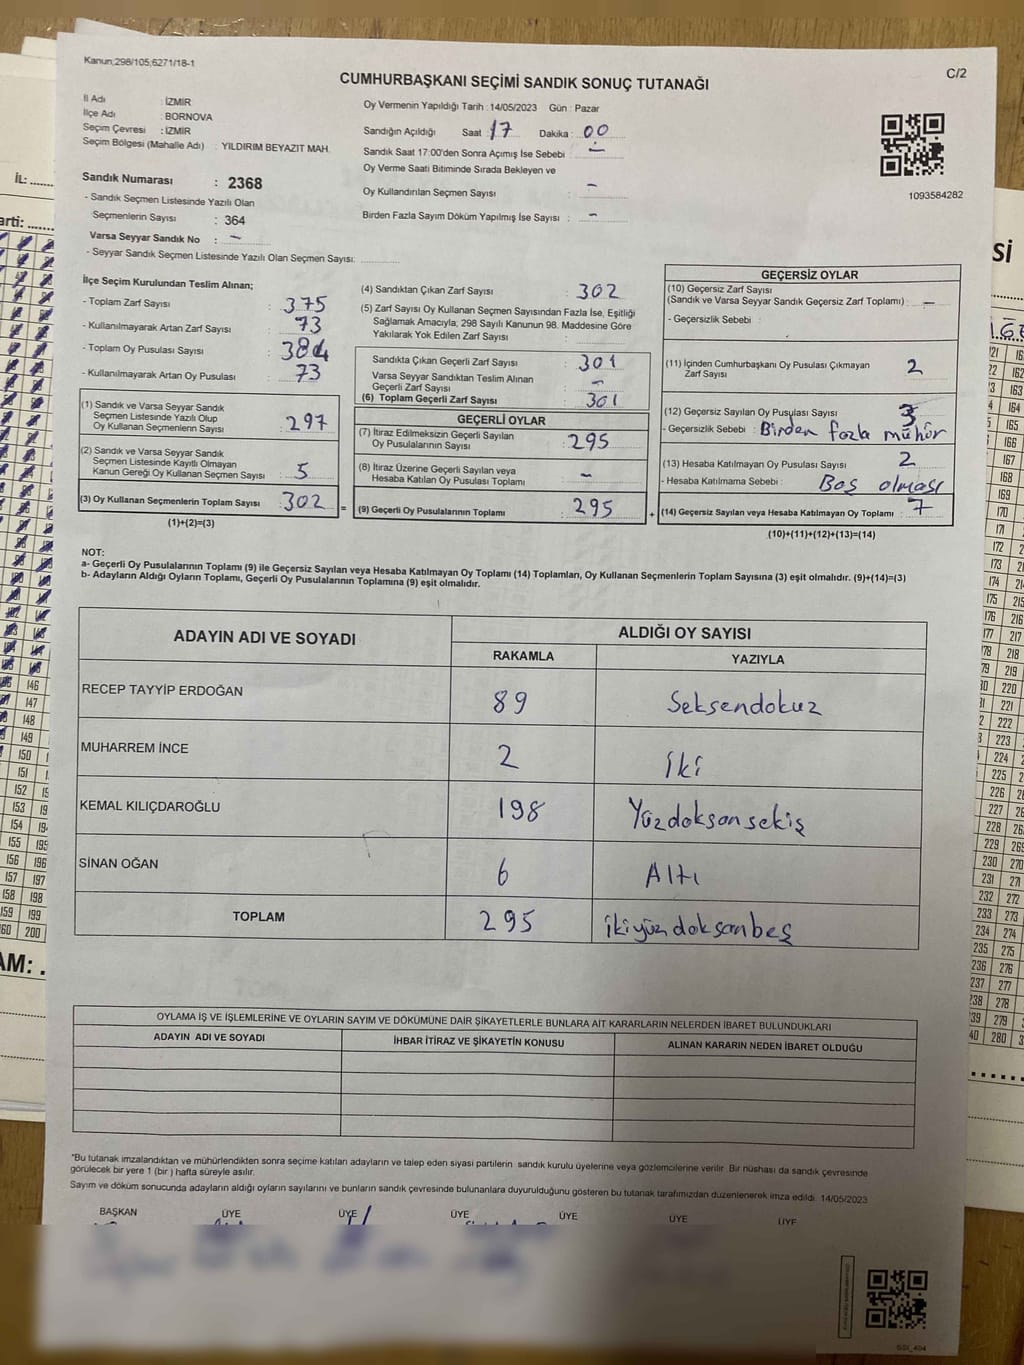 Kanun;298/105;6271/18-1
C/2
CUMHURBAŞKANI SEÇİMİ SANDIK SONUÇ TUTANAĞI
İl Adı : İZMİR
İlçe Adı : BORNOVA
Seçim Çevresi : İZMİR
Seçim Bölgesi (Mahalle Adı) : YILDIRIM BEYAZIT MAH.
Sandık Numarası : 2368
- Sandık Seçmen Listesinde Yazılı Olan
Seçmenlerin Sayısı : 364
Varsa Seyyar Sandık No : -
- Seyyar Sandık Seçmen Listesinde Yazılı Olan Seçmen Sayısı:
Oy Vermenin Yapıldığı Tarih : 14/05/2023 Gün : Pazar
Sandığın Açıldığı Saat : 17 Dakika : 00
Sandık Saat 17:00'den Sonra Açımış İse Sebebi : -
Oy Verme Saati Bitiminde Sırada Bekleyen ve
Oy Kullandırılan Seçmen Sayısı : -
Birden Fazla Sayım Döküm Yapılmış İse Sayısı : -
1093584282
İlçe Seçim Kurulundan Teslim Alınan;
- Toplam Zarf Sayısı : 375
- Kullanılmayarak Artan Zarf Sayısı : 73
- Toplam Oy Pusulası Sayısı : 384
- Kullanılmayarak Artan Oy Pusulası : 73
(1) Sandık ve Varsa Seyyar Sandık
Seçmen Listesinde Yazılı Olup
Oy Kullanan Seçmenlerin Sayısı : 297
(2) Sandık ve Varsa Seyyar Sandık
Seçmen Listesinde Kayıtlı Olmayan
Kanun Gereği Oy Kullanan Seçmen Sayısı : 5
(3) Oy Kullanan Seçmenlerin Toplam Sayısı : 302
(1)+(2)=(3)
=
(4) Sandıktan Çıkan Zarf Sayısı : 302
(5) Zarf Sayısı Oy Kullanan Seçmen Sayısından Fazla İse, Eşitliği
Sağlamak Amacıyla, 298 Sayılı Kanunun 98. Maddesine Göre
Yakılarak Yok Edilen Zarf Sayısı :
Sandıkta Çıkan Geçerli Zarf Sayısı : 301
Varsa Seyyar Sandıktan Teslim Alınan
Geçerli Zarf Sayısı : -
(6) Toplam Geçerli Zarf Sayısı : 301
GEÇERLİ OYLAR
(7) İtiraz Edilmeksizin Geçerli Sayılan
Oy Pusulalarının Sayısı : 295
(8) İtiraz Üzerine Geçerli Sayılan veya
Hesaba Katılan Oy Pusulası Toplamı : -
(9) Geçerli Oy Pusulalarının Toplamı : 295
+
GEÇERSİZ OYLAR
(10) Geçersiz Zarf Sayısı
(Sandık ve Varsa Seyyar Sandık Geçersiz Zarf Toplamı) : -
- Geçersizlik Sebebi :
(11) İçinden Cumhurbaşkanı Oy Pusulası Çıkmayan
Zarf Sayısı : 2
(12) Geçersiz Sayılan Oy Pusulası Sayısı : 3
- Geçersizlik Sebebi : Birden fazla mühür
(13) Hesaba Katılmayan Oy Pusulası Sayısı : 2
- Hesaba Katılmama Sebebi : Boş olması
(14) Geçersiz Sayılan veya Hesaba Katılmayan Oy Toplamı : 7
(10)+(11)+(12)+(13)=(14)
NOT:
a- Geçerli Oy Pusulalarının Toplamı (9) ile Geçersiz Sayılan veya Hesaba Katılmayan Oy Toplamı (14) Toplamları, Oy Kullanan Seçmenlerin Toplam Sayısına (3) eşit olmalıdır. (9)+(14)=(3)
b- Adayların Aldığı Oyların Toplamı, Geçerli Oy Pusulalarının Toplamına (9) eşit olmalıdır.
ADAYIN ADI VE SOYADI
ALDIĞI OY SAYISI
RAKAMLA YAZIYLA
RECEP TAYYİP ERDOĞAN 89 Seksendokuz
MUHARREM İNCE 2 iki
KEMAL KILIÇDAROĞLU 198 Yüzdoksansekiş
SİNAN OĞAN 6 Altı
TOPLAM 295 ikiyüzdoksanbeş
OYLAMA İŞ VE İŞLEMLERİNE VE OYLARIN SAYIM VE DÖKÜMÜNE DAİR ŞİKAYETLERLE BUNLARA AİT KARARLARIN NELERDEN İBARET BULUNDUKLARI
ADAYIN ADI VE SOYADI İHBAR İTİRAZ VE ŞİKAYETİN KONUSU ALINAN KARARIN NEDEN İBARET OLDUĞU
"Bu tutanak imzalandıktan ve mühürlendikten sonra seçime katılan adayların ve talep eden siyasi partilerin sandık kurulu üyelerine veya gözlemcilerine verilir. Bir nüshası da sandık çevresinde
görülecek bir yere 1 (bir ) hafta süreyle asılır.
Sayım ve döküm sonucunda adayların aldığı oyların sayılarını ve bunların sandık çevresinde bulunanlara duyurulduğunu gösteren bu tutanak tarafımızdan düzenlenerek imza edildi. 14/05/2023
BAŞKAN ÜYE ÜYE ÜYE ÜYE ÜYE ÜYE